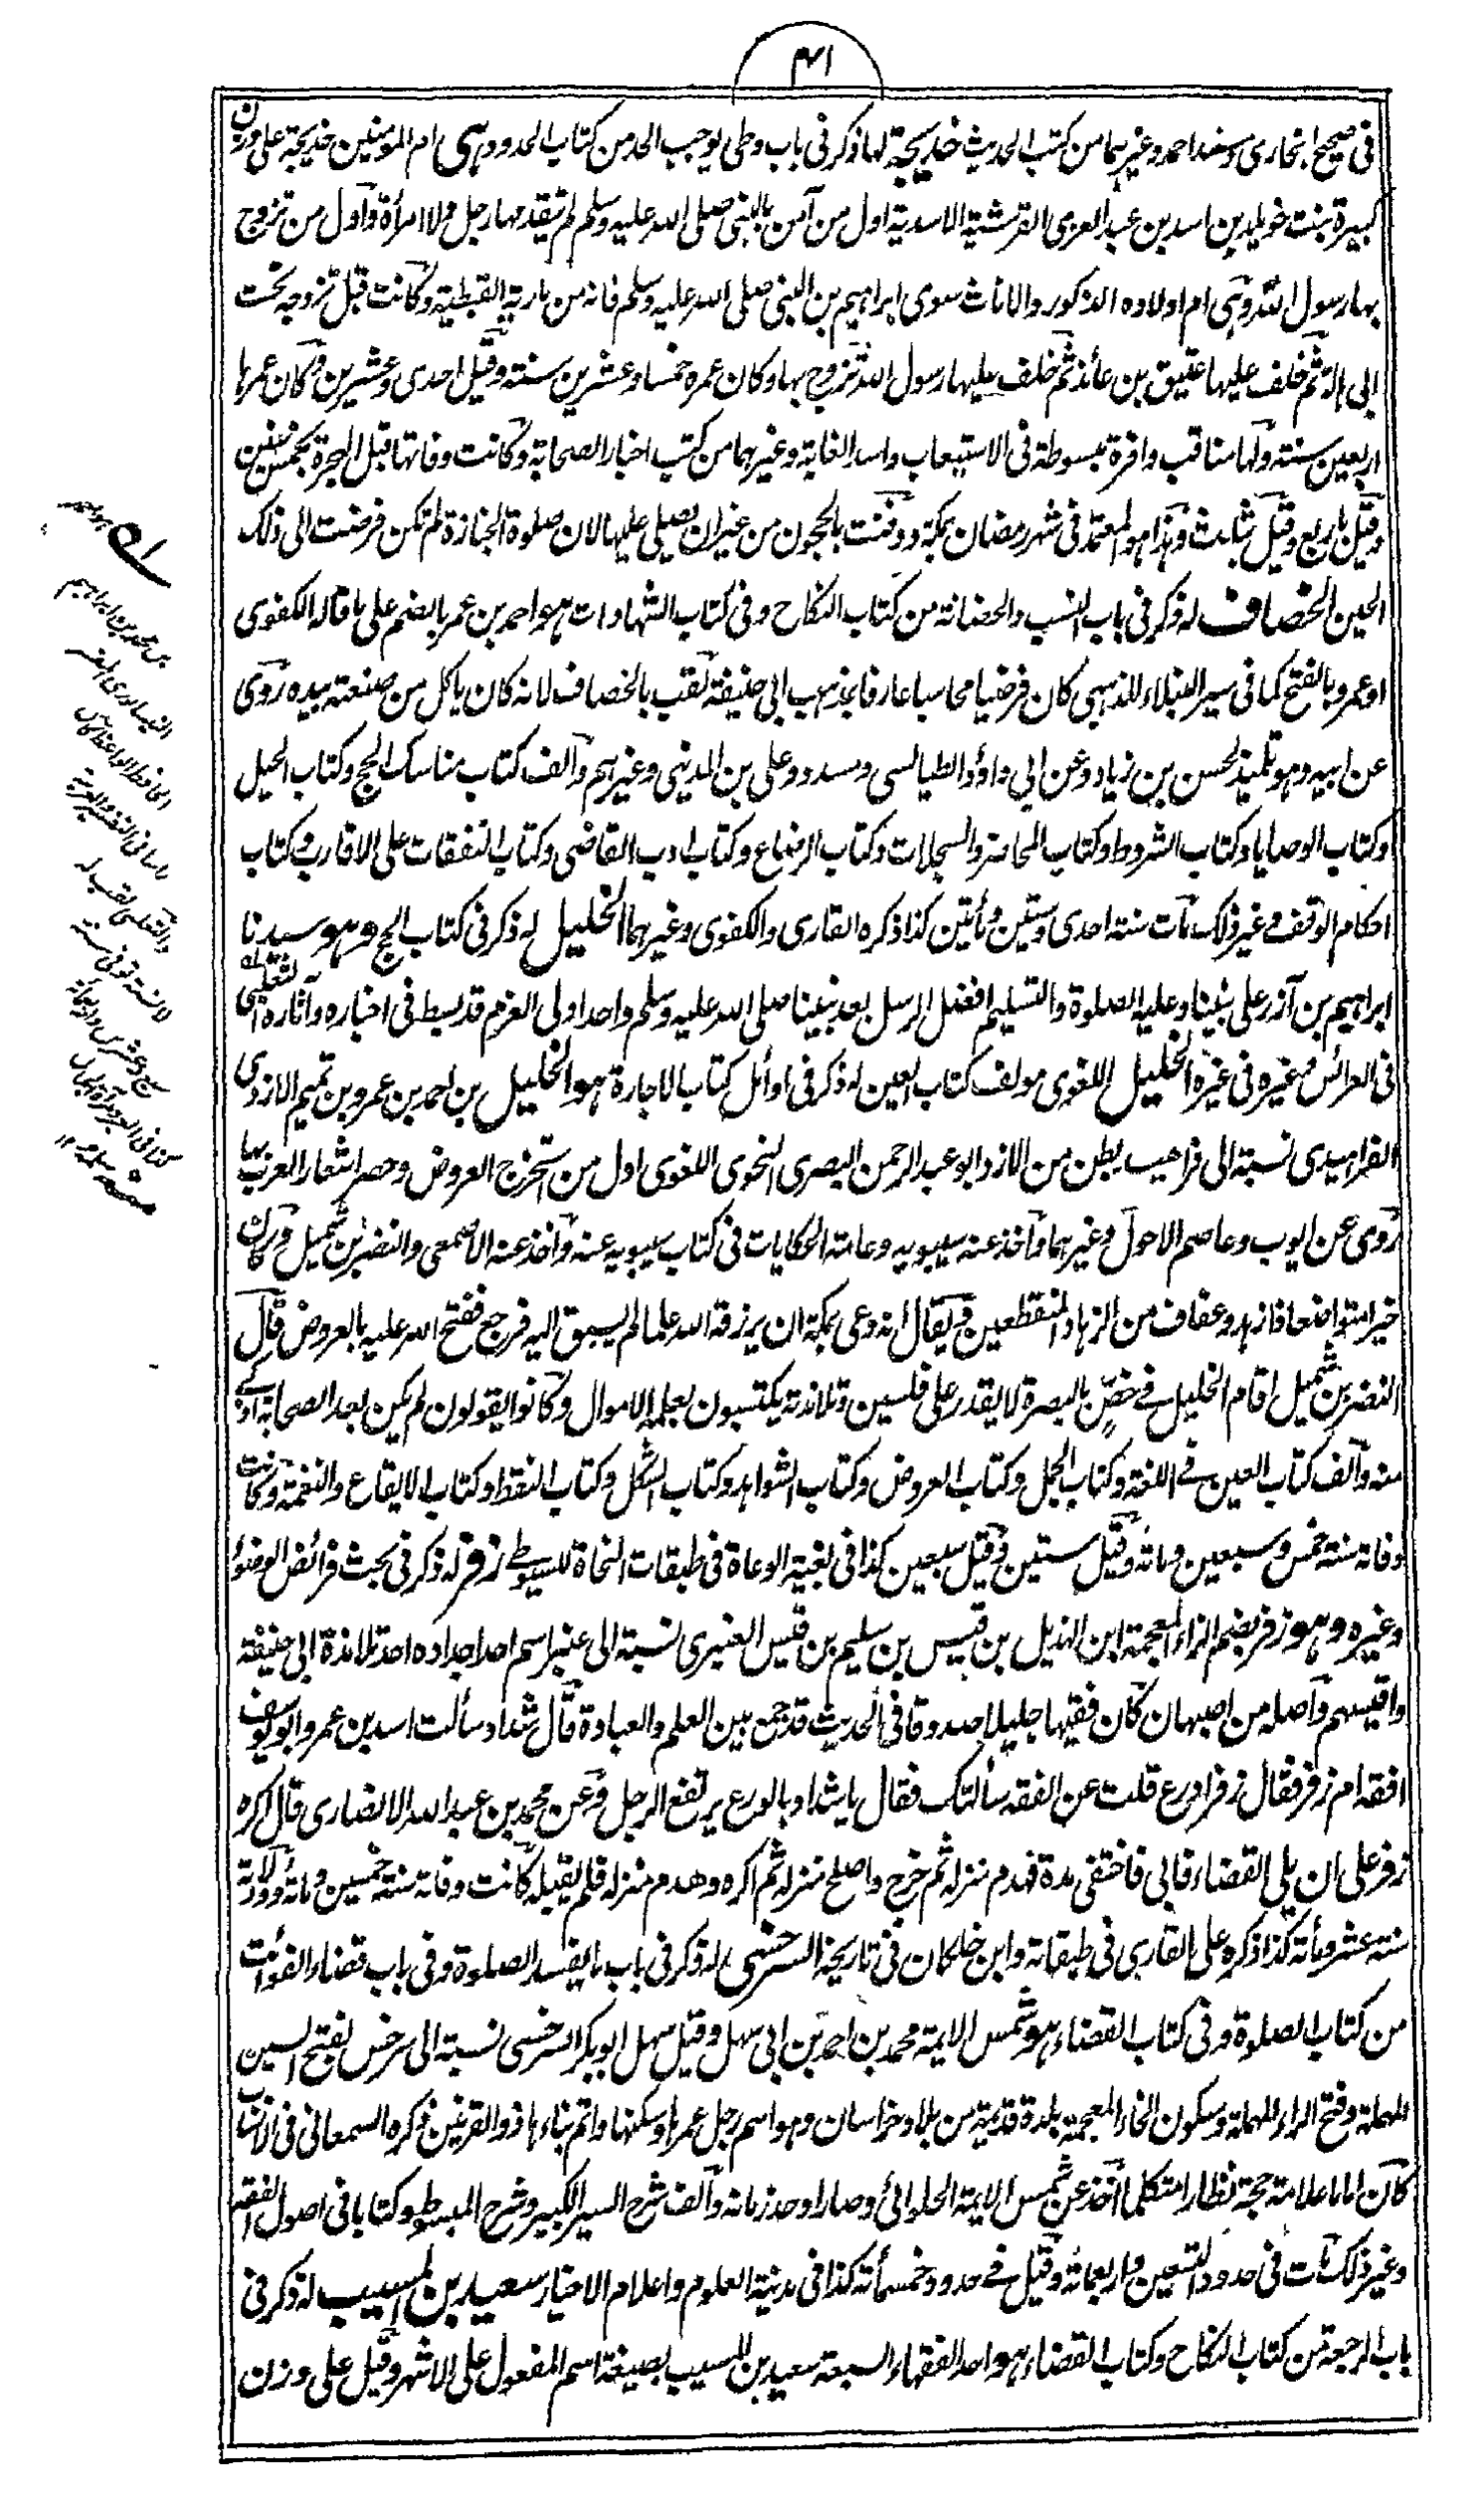 ٤١
في صحيح البخاري ومسند احمد وغيرهما من كتب الحديث خديجة لها ذكر في باب وطي يوجب الحد من كتاب الحدود هي ام المومنين خديجة على وزن
كبيرة بنت خويلد بن اسد بن عبد العزى القرشية الاسدية اول من آمن بالنبي صلى الله عليه وسلم لم يتقدمها رجل ولا امرأة وأول من تزوج
بها رسول الله وهي ام اولاده الذكور والاناث سوى ابراهيم بن النبي صلى الله عليه وسلم فانه من مارية القبطية وكانت قبل تزوجه تحت
ابي هالة ثم خلف عليها عتيق بن عائذ ثم خلف عليها رسول الله تزوج بها وكان عمره خمسا وعشرين سنة وقيل احدى وعشرين وكان عمرها
اربعين سنة ولها مناقب وافرة مبسوطة في الاستيعاب واسد الغابة وغيرهما من كتب اخبار الصحابة وكانت وفاتها قبل الهجرة بخمس سنين
وقيل باربع وقيل بثلث وهذا هو المعتمد في شهر رمضان بمكة ودفنت بالحجون من غير ان يصلي عليها لان صلوة الجنازة لم تكن فرضت الى ذلك
الحين الخصاف له ذكر في باب النسب والحضانة من كتاب النكاح وفي كتاب الشهادات هو احمد بن عمر بالضم على ما قاله الكفوي
او عمرو بالفتح كما في سير النبلاء للذهبي كان فرضيا محاسبا عارفا بمذهب ابي حنيفة لقب بالخصاف لانه كان ياكل من صنعة بيده روى
عن ابيه وهو تلميذ لحسن بن زياد وعن ابي داؤد الطيالسي ومسدد وعلي بن المديني وغيرهم وألف كتاب مناسك الحج وكتاب الحيل
وكتاب الوصايا وكتاب الشروط وكتاب المحاضر والسجلات وكتاب الرضاع وكتاب ادب القاضي وكتاب النفقات على الاقارب وكتاب
احكام الوقف وغير ذلك مات سنة احدى وستين ومأتين كذا ذكره القاري والكفوي وغيرهما الخليل له ذكر في كتاب الحج وهو سيدنا
ابراهيم بن آزر على نبينا وعليه الصلوة والتسليم افضل الرسل بعد نبينا صلى الله عليه وسلم واحد اولي العزم قد بسط في اخباره وآثاره الثعلبي
في العرائس وغيره في غيره الخليل اللغوي مولف كتاب العين له ذكر في اوائل كتاب الاجارة هو الخليل بن احمد بن عمرو بن تميم الازدي
الفراهيدي نسبة الى فراهيد بطن من الازد ابو عبد الرحمن البصري النحوي اللغوي اول من استخرج العروض وحصر اشعار العرب بها
روى عن ايوب وعاصم الاحول وغيرهما وأخذ عنه سيبويه وعامة الحكايات في كتاب سيبويه عنه وأخذ عنه الاصمعي والنضر بن شميل وكان
خيرا متواضعا ذا زهد وعفاف من الزهاد المنقطعين ويقال انه دعى بمكة ان يرزقه الله علما لم يسبق اليه فرجع ففتح الله عليه بالعروض قال
النضر بن شميل اقام الخليل في خص بالبصرة لا يقدر على فلسين وتلامذته يكتسبون بعلمه الاموال وكانوا يقولون لم يكن بعد الصحابة اذكى
منه وألف كتاب العين في اللغة وكتاب الجمل وكتاب العروض وكتاب الشواهد وكتاب الشكل وكتاب النقط وكتاب الايقاع والنغمة وكانت
وفاته سنة خمس وسبعين ومائة وقيل ستين وقيل سبعين كذا في بغية الوعاة في طبقات النحاة للسيوطي زفر له ذكر في بحث فرائض الوضوء
وغيره وهو زفر بضم الزاء المعجمة ابن الهذيل بن قيس بن سليم بن قيس العنبري نسبة الى عنبر اسم احد اجداده احد تلامذة ابي حنيفة
واقيسهم وأصله من اصبهان كان فقيها جليلا صدوقا في الحديث قد جمع بين العلم والعبادة قال شداد سألت اسد بن عمرو ابو يوسف
افقه ام زفر فقال زفر اورع قلت عن الفقه سألتك فقال يا شداد بالورع يرتفع الرجل وعن محمد بن عبد الله الانصاري قال اكره
زفر على ان يلي القضاء فابى فاختفى مدة فهدم منزله ثم خرج واصلح منزله ثم اكره وهدم منزله فلم يقبله كانت وفاته سنة خمسين ومائة وولادته
سنة عشر ومأة كذا ذكره علي القاري في طبقاته وابن خلكان في تاريخه السرخسي له ذكر في باب ما يفسد الصلوة وفي باب قضاء الفوائت
من كتاب الصلوة وفي كتاب القضاء هو شمس الايمة محمد بن احمد بن ابي سهل وقيل سهل ابو بكر السرخسي نسبة الى سرخس بفتح السين
المهملة وفتح الراء المهملة وسكون الخاء المعجمة بلدة قديمة من بلاد خراسان وهو اسم رجل عمرها وسكنها واتم بناءها ذو القرنين ذكره السمعاني في الانساب
كان اماما علامة حجة نظارا متكلما أخذ عن شمس الايمة الحلوائي وصار اوحد زمانه وألف شرح السير الكبير وشرح المبسوط وكتابا في اصول الفقه
وغير ذلك مات في حدود التسعين واربعمائة وقيل في حدود خمسمأئة كذا في مدينة العلوم واعلام الاخيار سعيد بن المسيب له ذكر في
باب الرجعة من كتاب النكاح وكتاب القضاء هو احد الفقهاء السبعة سعيد بن المسيب بصيغة اسم المفعول على الاشهر وقيل على وزن
هو احمد
بن محمد بن ابراهيم
النيسابوري
الحافظ الواعظ كان
والثعلبي لقب له
لا نسبة توفي سنة
سبع وعشرين واربعمائة